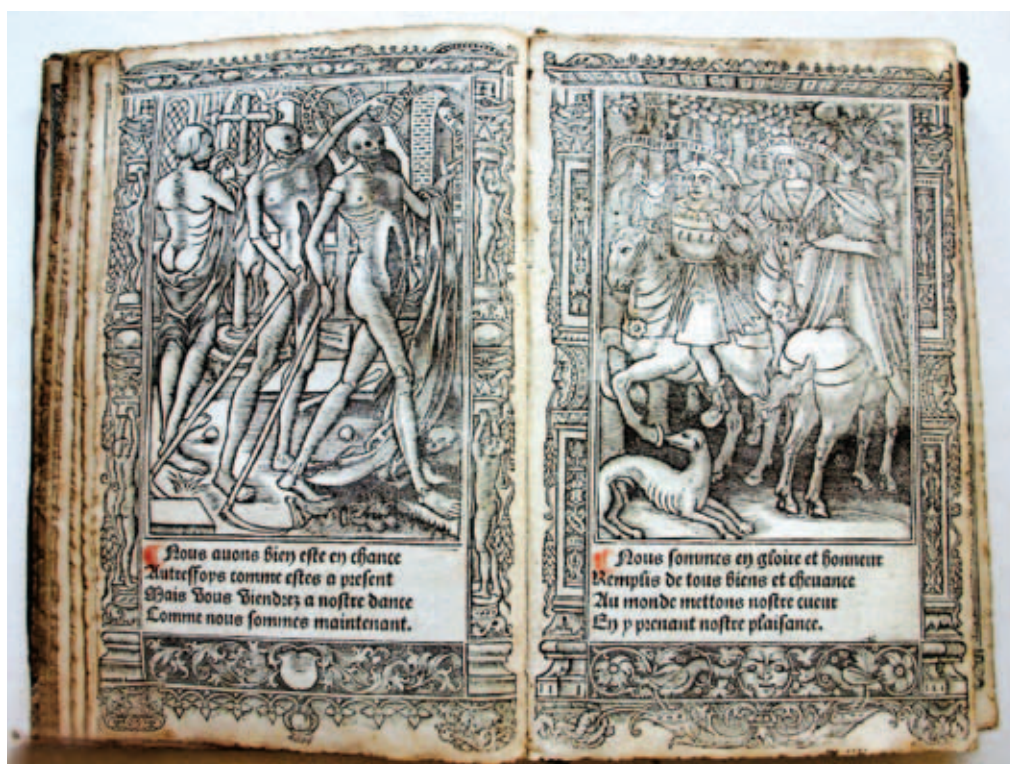 Nous auons bien este en chance
Autreffoys comme estes a present
Mais Vous Viendrez a nostre dance
Comme nous sommes maintenant.
Nous sommes en gloire et honneur
Remplis de tous biens et cheuance
Au monde mettons nostre cueur
En y prenant nostre plaisance.